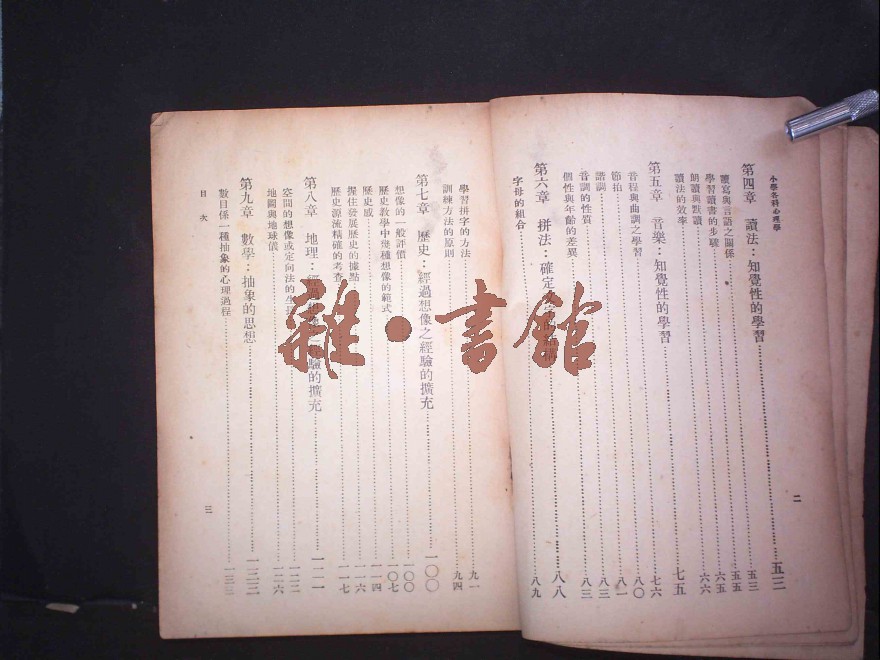 小學各科心理學
第四章 讀法：知覺性的學習 五三
讀寫與言語之關係 五三
學習讀書的步驟 五五
朗讀與默讀 六五
讀法的效率 六六
第五章 音樂：知覺性的學習 七五
音程與曲調之學習 七六
節拍 八〇
諧調 八一
音調的性質 八三
個性與年齡的差異 八三
第六章 拼法：確定 八八
字母的組合 八九
二
學習拼字的方法 九一
訓練方法的原則 九四
第七章 歷史：經過想像之經驗的擴充 一〇〇
想像的一般評價 一〇〇
歷史教學中幾種想像的範式 一〇七
歷史感 一一四
握住發展歷史的據點 一一六
歷史源流精確的考查 一一七
第八章 地理：經過 驗的擴充 一二一
空間的想像或定向法的生 一二二
地圖與地球儀 一二六
第九章 數學：抽象的思想 一三二
數目係一種抽象的心理過程 一三三
目次
三
雜·書館